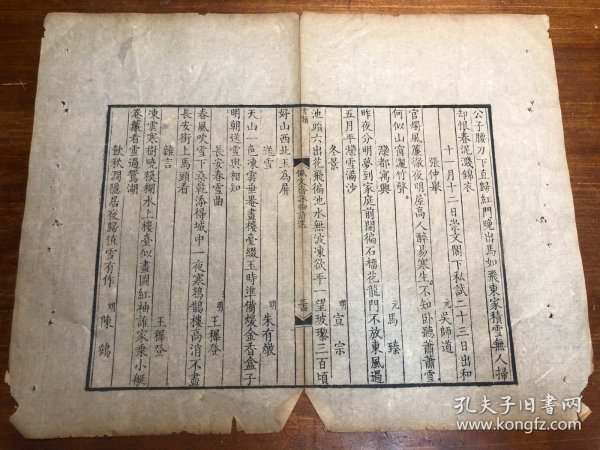 公子腰刀下直歸紅門晚出馬如飛東家積雪無人掃
却恨春泥濺錦衣
張仲舉
十一月十二日崇文閣下私試二十三日出和
元吳師道
官燭風簾徹夜明屋高人醉易寒生不知臥聽蕭蕭雪
何似山窗灑竹聲
灤都寓興
元馬臻
昨夜分明夢到家庭前開徧石榴花龍門不放東風過
五月平灤雪滿沙
冬景
明宣宗
池頭六出花飛徧池水無波凍欲平一望玻瓈三百頃
好山西北玉為屏
送雪
明朱有燉
天山一色凍雲垂萬畫樓臺綴玉時準備煖金香盒子
明朝送雪與相知
長安春雪曲
明王穉登
春風吹雪下桑乾添得城中一夜寒鳷鵲樓高消不盡
長安街上馬頭看
雜言
王穉登
凍雲寒樹曉糢糊水上樓臺似畫圖紅袖誰家乘小艇
卷簾看雪過鴛湖
飲秋澗隱居夜歸值雪有作
明陳鶴
雪類
佩文齋詠物詩選
孔夫子旧书网
www.kongfz.com